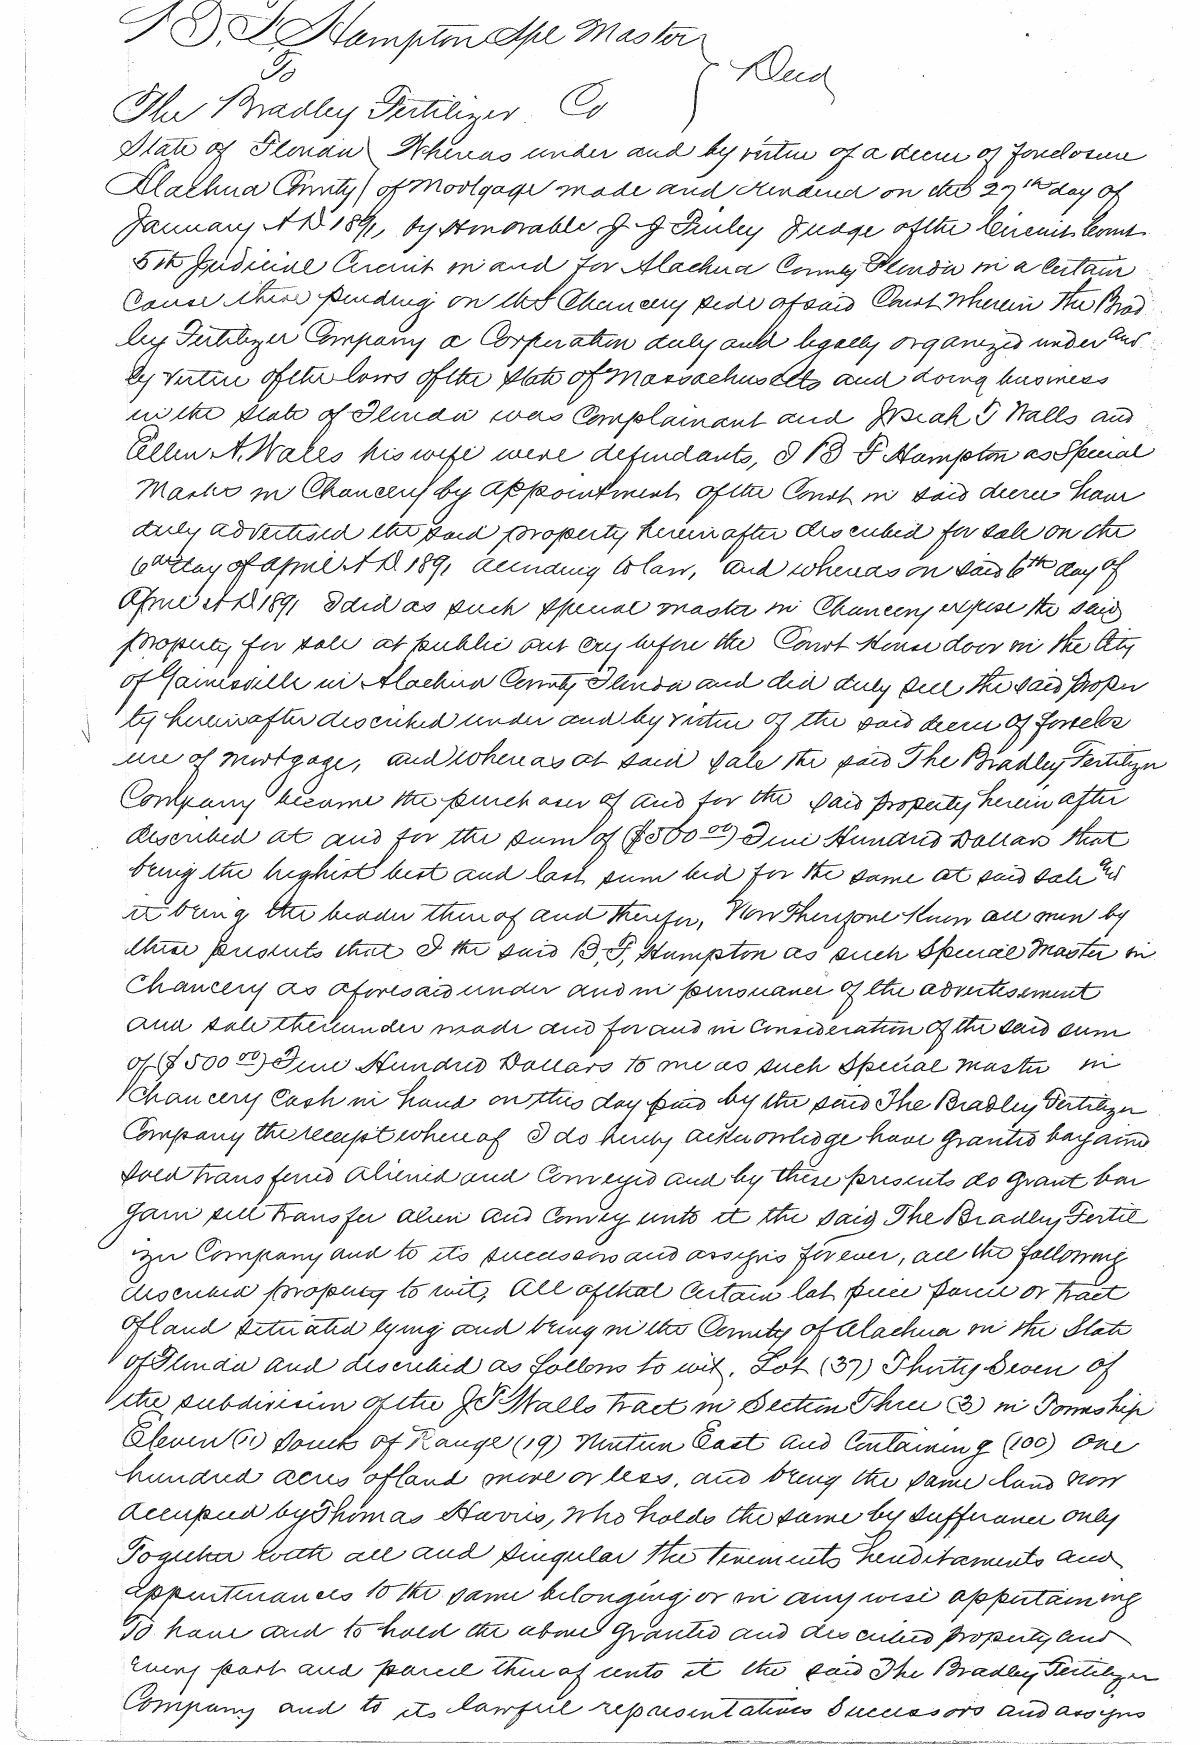 B. F. Hampton Spe Master
To
Deed
The Bradley Fertilizer Co
State of Florida Whereas under and by virtue of a decree of foreclosure
Alachua County of Mortgage made and rendered on the 27th day of
January A D 1891, by Honorable J J Finley Judge of the Circuit Court
5th Judicial Circuit in and for Alachua County Florida in a certain
cause there pending on the Chancery side of said Court wherein the Brad
ley Fertilizer Company a Corporation duly and legally organized under and
by virtue of the laws of the State of Massachusetts and doing business
in the State of Florida was Complainant and Josiah T Walls and
Ellen A. Walls his wife were defendants, I B F Hampton as Special
Master in Chancery by appointment of the Court in said decree have
duly advertised the said property hereinafter described for sale on the
6th day of April A D. 1891 according to law, and whereas on said 6th day of
April A D 1891 I did as such special master in Chancery expose the said
property for sale at public out cry before the Court House door in the City
of Gainesville in Alachua County Florida and did duly sell the said proper
ty hereinafter described under and by virtue of the said decree of foreclos
ure of mortgage, and whereas at said sale the said The Bradley Fertilizer
Company became the purchaser of and for the said property herein after
described at and for the sum of ($500 00) Five Hundred Dollars that
being the highest best and last sum bid for the same at said sale and
it being the bidder thereof and therefor, Now Therefore Know all men by
these presents that I the said B. F. Hampton as such Special Master in
Chancery as aforesaid under and in pursuance of the advertisement
and sale thereunder made and for and in consideration of the said sum
of ($500 00) Five Hundred Dollars to me as such Special Master in
Chancery Cash in hand on this day paid by the said The Bradley Fertilizer
Company the receipt whereof I do hereby acknowledge have granted bargained
sold transferred aliened and Conveyed and by these presents do grant bar
gain sell transfer alien and convey unto it the said The Bradley Fertil
izer Company and to its successors and assigns forever, all the following
described property to wit, All of that certain lot piece parcel or tract
of land situated lying and being in the County of Alachua in the State
of Florida and described as follows to wit, Lot (37) Thirty Seven of
the subdivision of the J T Walls tract in Section Three (3) in Township
Eleven (11) South of Range (19) Nineteen East and Containing (100) One
hundred acres of land more or less, and being the same land now
occupied by Thomas Harris, who holds the same by sufferance only
Together with all and singular the tenements hereditaments and
appurtenances to the same belonging or in any wise appertaining
To have and to hold the above granted and described property and
every part and parcel thereof unto it the said The Bradley Fertilizer
Company and to its lawful representatives Successors and assigns